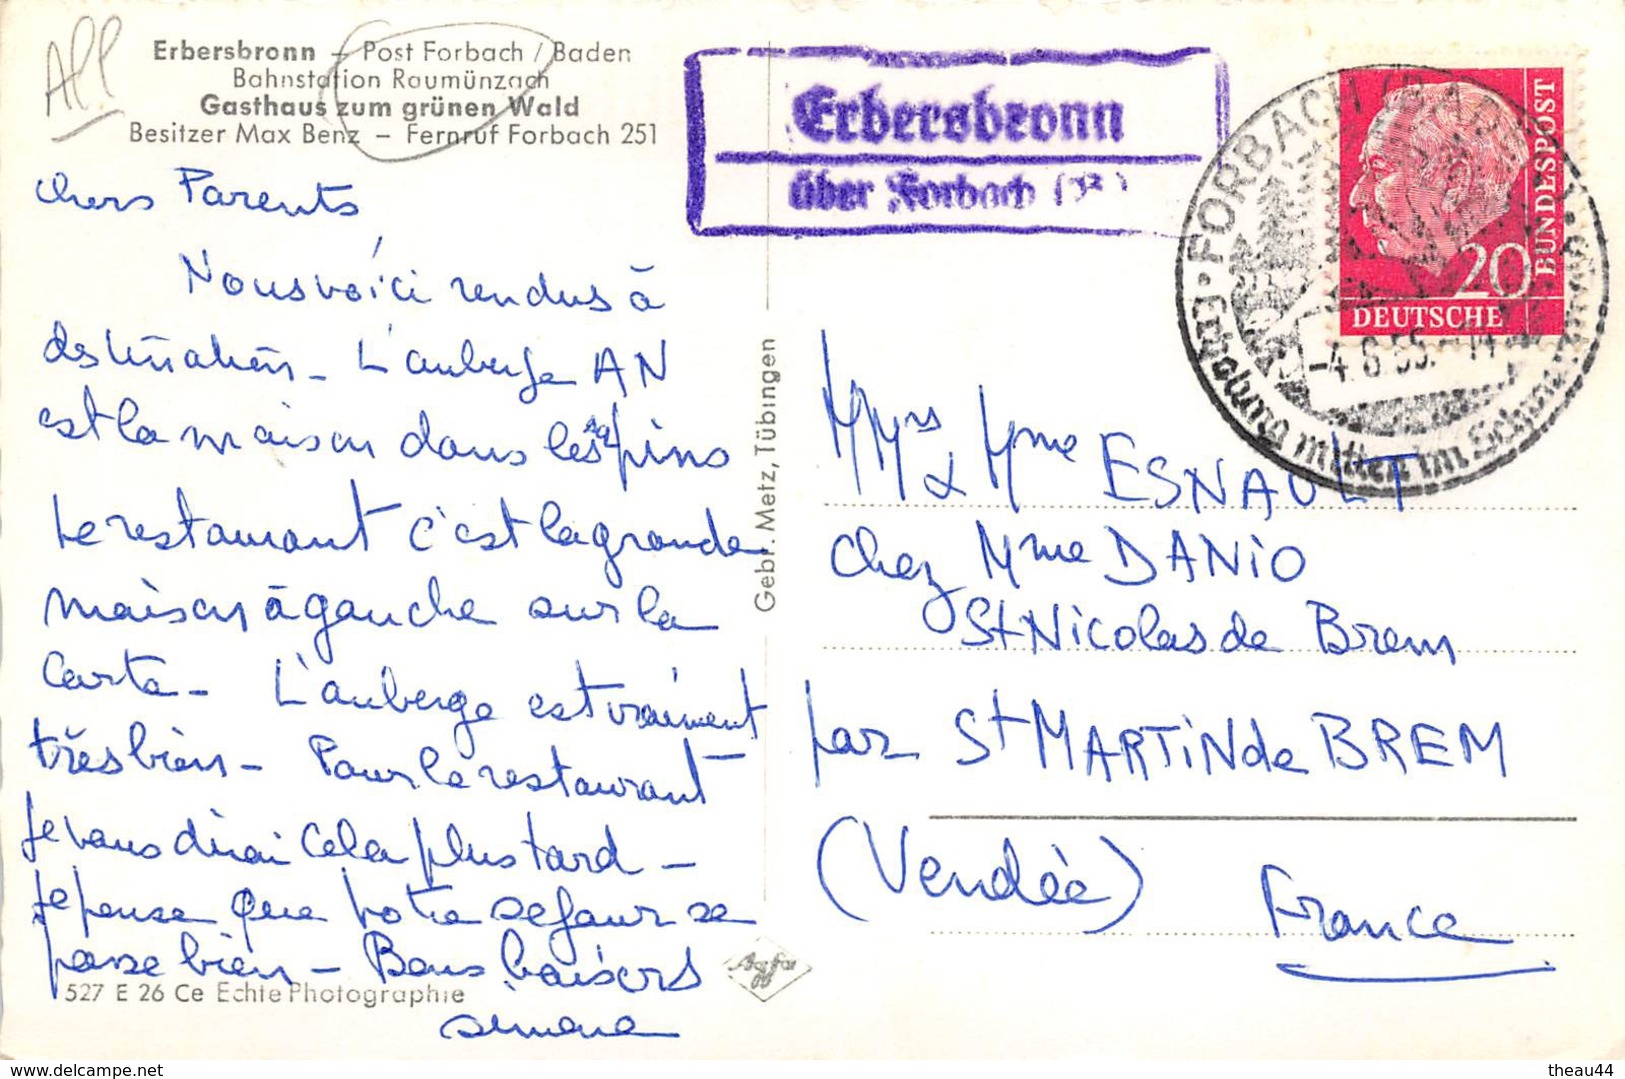 All
Erbersbronn – Post Forbach / Baden
Bahnstation Raumünzach
Gasthaus zum grünen Wald
Besitzer Max Benz – Fernruf Forbach 251
Chers Parents
Nous voici rendus à
destination – L'auberge AN
est la maison dans les sapins
Le restaurant c'est la grande
maison à gauche sur la
carte – L'auberge est vraiment
très bien – Pour le restaurant
je vous dirai cela plus tard –
Je pense que votre sejour se
passe bien – Bons baisers
Simone
527 E 26 Ce Echte Photographie
Agfa
Gebr. Metz, Tübingen
Erbersbronn
über Forbach
FORBACH (BADEN)
Erholung mitten im Schwarzwald
-4.8.55.-14
DEUTSCHE
BUNDESPOST
20
MMrs & Mme ESNAULT
chez Mme DANiO
St Nicolas de Brem
par St MARTiN de BREM
(Vendée)
France
www.delcampe.net
theau44